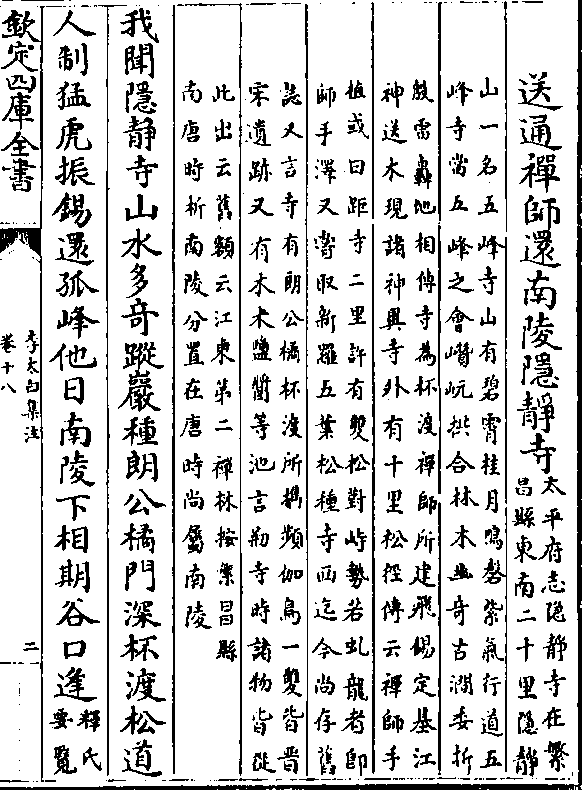 送通禪師還南陵隱靜寺太平府志隐静寺在繁
昌縣東南二十里隱靜
山一名五峰寺山有碧霄桂月鳴磬紫氣行道五
峰寺當五峰之會巑岏拱合林木幽奇古澗委折
殷雷轟地相傳寺為杯渡禪師所建飛錫定基江
神送木現諸神異寺外有十里松徑傳云禪師手
植或曰距寺二里許有雙松對峙勢若虬龍者即
師手澤又嘗取新羅五葉松種寺西迄今尚存舊
誌又言寺有朗公橘杯渡所攜頻伽鳥一雙皆晋
宋遺跡又有木米鹽醬等池言剏寺時諸物皆從
此出云舊額云江東第二禪林按繁昌縣
南唐時析南陵分置在唐時尚屬南陵
我聞隱靜寺山水多奇蹤巖種朗公橘門深杯渡松道
人制猛虎振錫還孤峰他日南陵下相期谷口逢釋氏
要覽
欽定四庫全書
李太白集注
卷十八
二